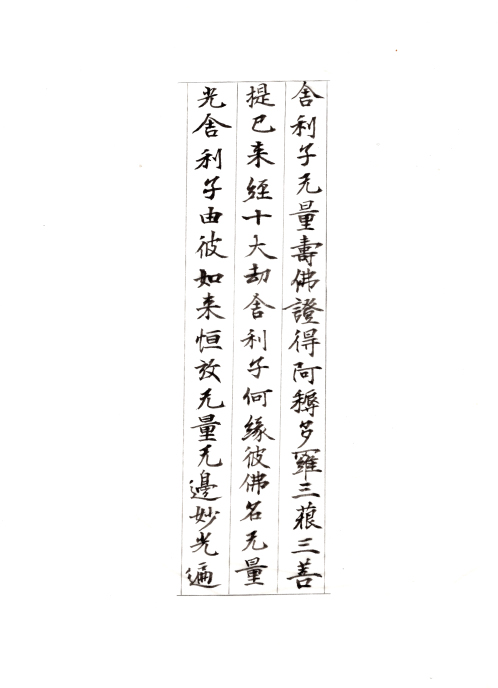 舍利子无量壽佛證得阿耨多羅三藐三菩
提已来經十大劫舍利子何緣彼佛名无量
光舍利子由彼如来恒放无量无邊妙光遍